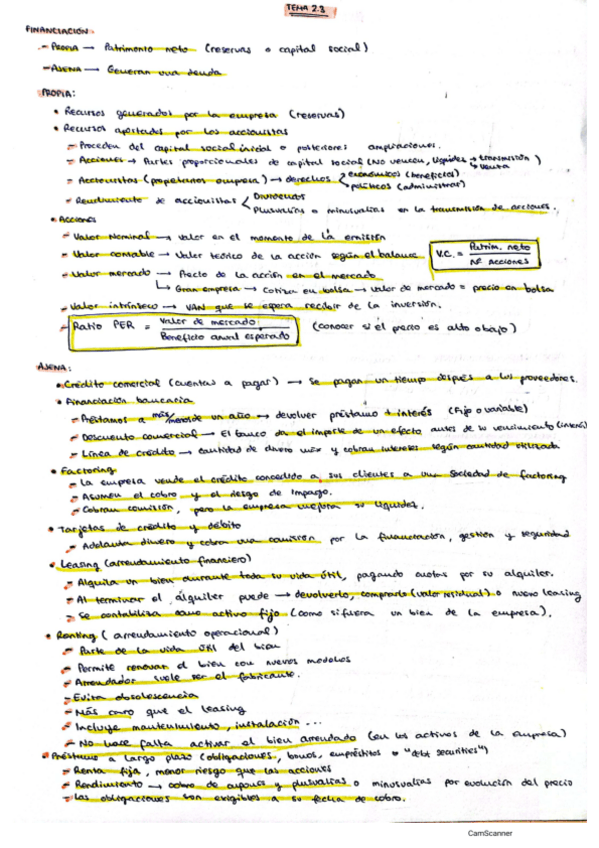 TEMA 2.3
FINANCIACIÓN:
- PROPIA → Patrimonio neto (reservas o capital social)
- AJENA → Generan una deuda
PROPIA:
• Recursos generados por la empresa (reservas)
• Recursos aportados por los accionistas
- Proceden del capital social inicial o posteriores ampliaciones.
- Acciones → Partes proporcionales de capital social (No vencen, líquidas → transmisión → venta)
- Accionistas (propietarios empresa) → derechos económicos (beneficios) políticos (administrar)
- Rendimiento de accionistas < Dividendos
Plusvalías o minusvalías en la transmisión de acciones.
• Acciones
- Valor Nominal → valor en el momento de la emisión
- Valor contable → Valor teórico de la acción según el balance V.C. = Patrim. neto / Nº Acciones
- Valor mercado → Precio de la acción en el mercado
↳ Gran empresa → Cotiza en bolsa → valor de mercado = precio en bolsa
- Valor intrínseco → VAN que se espera recibir de la inversión.
- Ratio PER = Valor de mercado / Beneficio anual esperado (conocer si el precio es alto o bajo)
AJENA:
• Crédito comercial (cuentas a pagar) → Se pagan un tiempo después a los proveedores.
• Financiación bancaria
- Préstamos a más/menos de un año → devolver préstamo + interés (Fijo o variable)
- Descuento comercial → El banco da el importe de un efecto antes de su vencimiento (interés)
- Línea de crédito → cantidad de dinero máx y cobran intereses según cantidad utilizada
• Factoring
- La empresa vende el crédito concedido a sus clientes a una Sociedad de factoring
- Asumen el cobro y el riesgo de impago.
- Cobran comisión, pero la empresa mejora su liquidez.
• Tarjetas de crédito y débito
- Adelanta dinero y cobra una comisión por la financiación, gestión y seguridad
• Leasing (arrendamiento financiero)
- Alquila un bien durante toda su vida útil, pagando cuotas por su alquiler.
- Al terminar el alquiler puede → devolverlo, comprarlo (valor residual) o nuevo leasing
- Se contabiliza como activo fijo (como si fuera un bien de la empresa).
• Renting (arrendamiento operacional)
- Parte de la vida útil del bien
- Permite renovar el bien con nuevos modelos
- Arrendador suele ser el fabricante.
- Evita obsolescencia
- Más caro que el leasing
- Incluye mantenimiento, instalación ...
- No hace falta activar el bien arrendado (en los activos de la empresa)
• Préstamo a largo plazo (obligaciones, bonos, empréstitos o "debt securities")
- Renta fija, menor riesgo que las acciones
- Rendimiento → cobro de cupones y plusvalías o minusvalías por evolución del precio
- Las obligaciones son exigibles a su fecha de cobro.
CamScanner